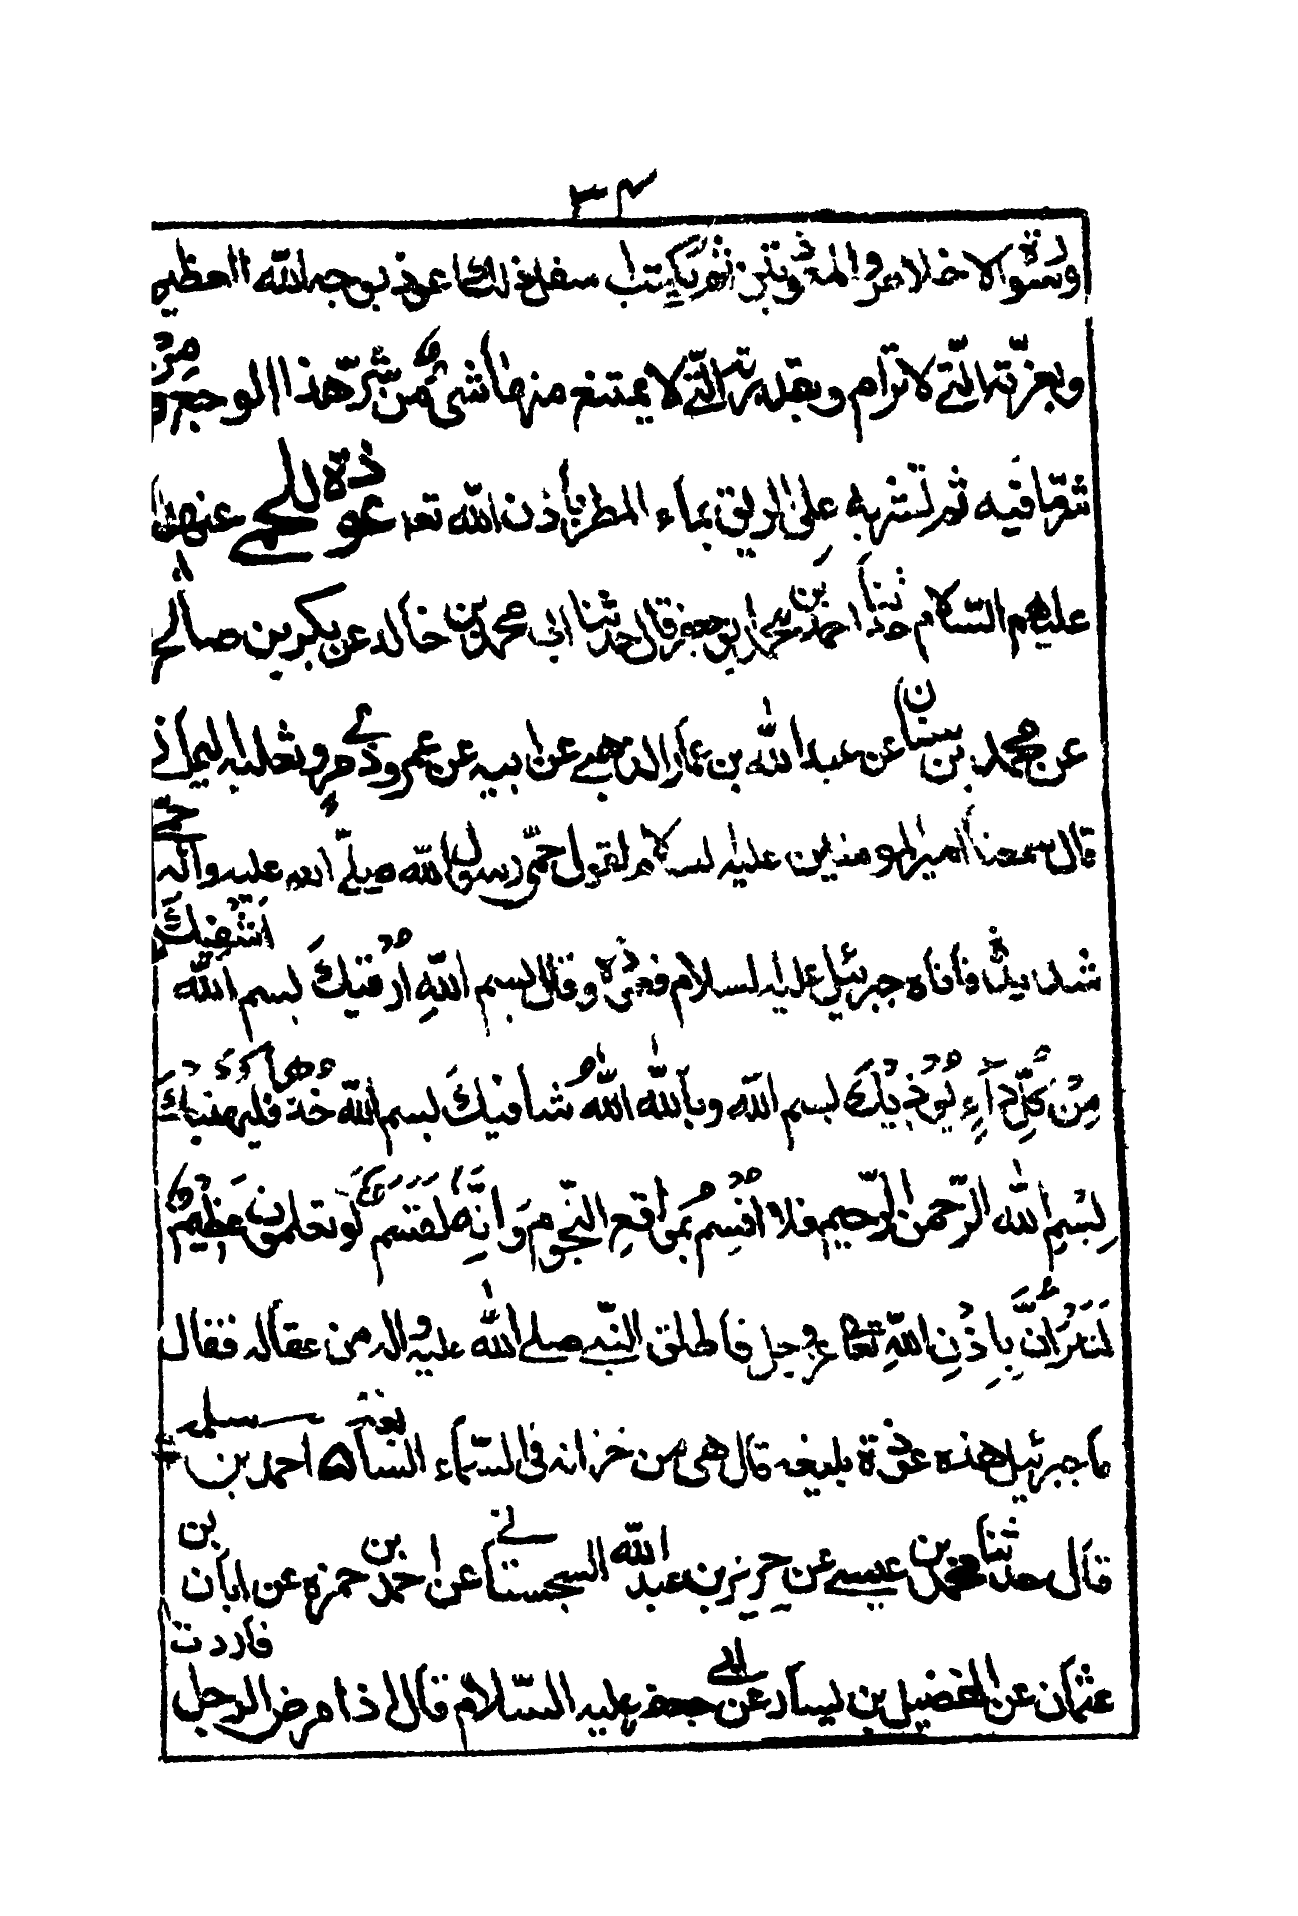 ٣٤
وسورة الاخلاص والمعوذتين ثم يكتب اسفل ذلك اعوذ بوجه الله العظيم
وبعزته التي لا ترام وبقدرته التي لا يمتنع منها شئ من شر هذا الوجع ومن
شر ما فيه ثم تشربه على الريق بماء المطر باذن الله تعه عوذة للحمى عنهم
عليهم السلام حدثنا احمد بن محمد بن جعفر قال حدثنا ابي محمد بن خالد عن بكر بن صالح
عن محمد بن سنان عن عبد الله بن عمار الدهني عن ابيه عن عمرو ذي مر وثعلبة اليماني
قال سمعنا امير المومنين عليه السلام يقول حمى رسول الله صلى الله عليه وآله حمى
شديدة فاتاه جبرئيل عليه السلام فعوذه وقال بسم الله ارقيك بسم الله اشفيك
من كل داء يوذيك بسم الله وبالله الله شافيك بسم الله خذها فليهنيك
بسم الله الرحمن الرحيم فلا اقسم بمواقع النجوم وانه لقسم لو تعلمون عظيم
لتبرأن باذن الله تعالى عز وجل فاطلق النبي صلى الله عليه واله من عقاله فقال
يا جبرئيل هذه عوذة بليغة قال هي من خزانة في السماء السابعة احمد بن سلمة
قال حدثنا محمد بن عيسى عن حريز بن عبد الله السجستاني عن احمد بن حمزه عن ابان بن
عثمان عن الفضيل بن يسار عن ابي جعفر عليه السلام قال اذا مرض الرجل فاردت